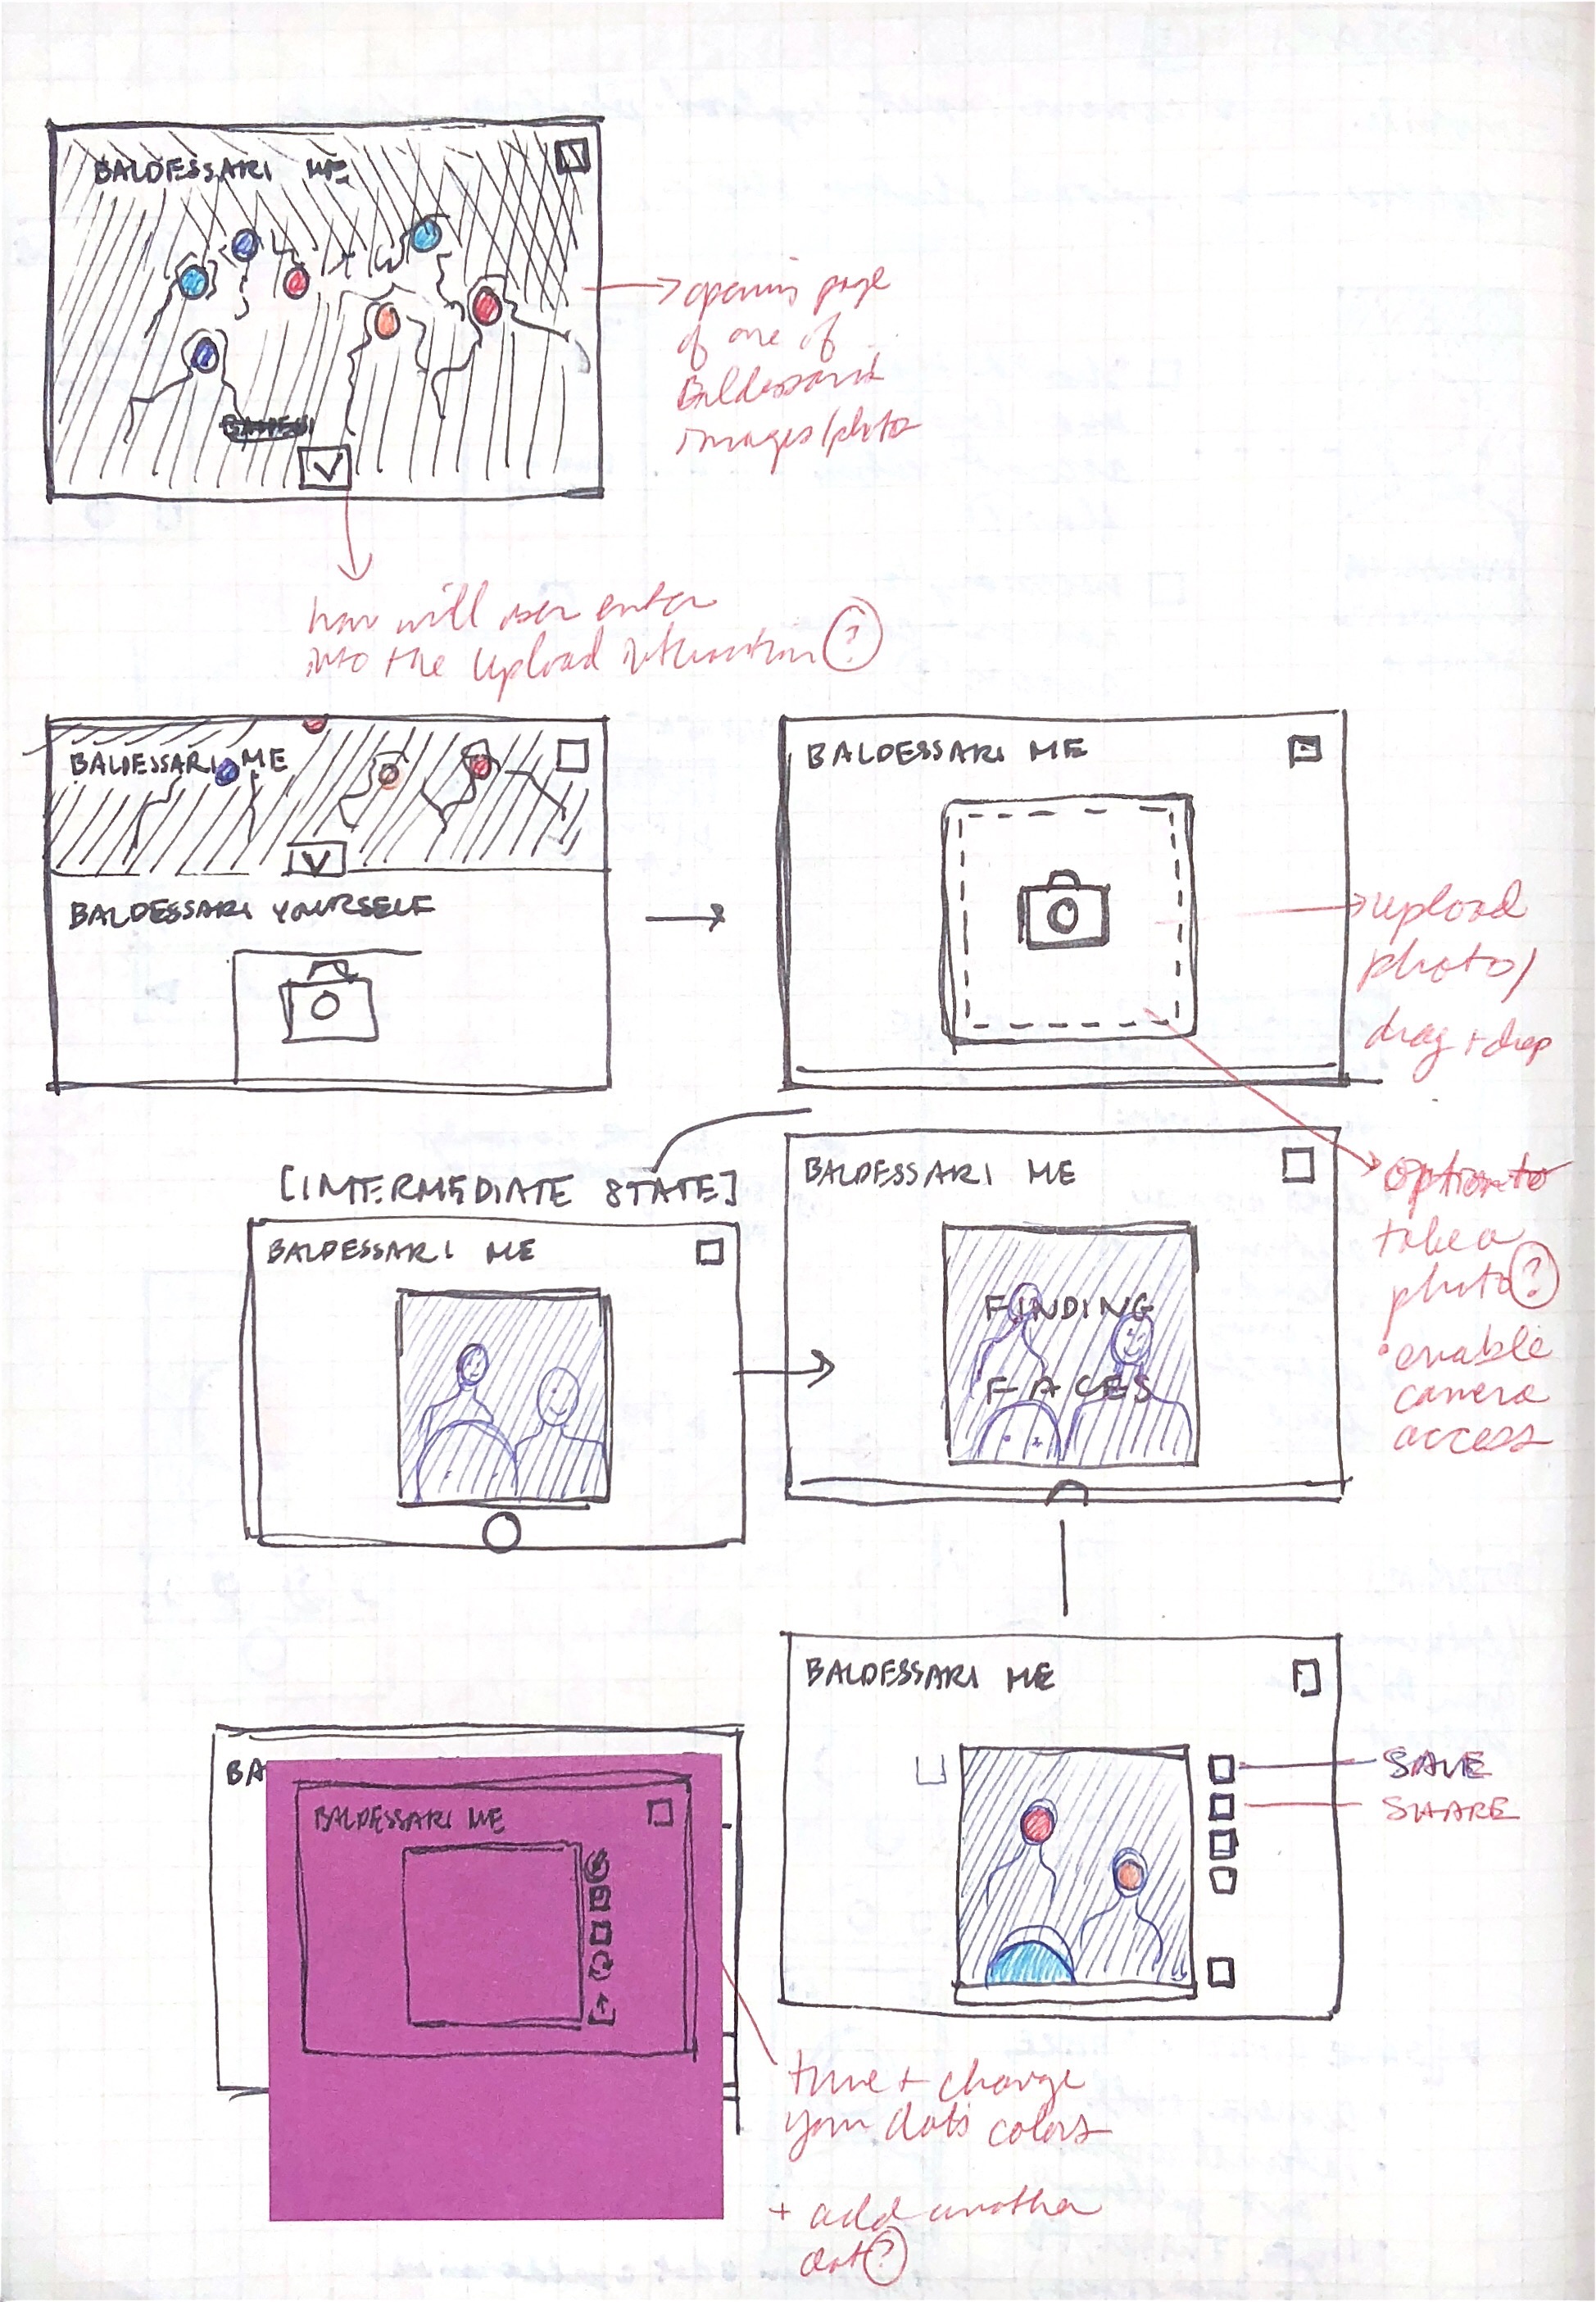 BALDESSARI ME
opening page
of one of
Baldessari's
images/photo
how will user enter
into the upload interaction ?
BALDESSARI ME
BALDESSARI YOURSELF
BALDESSARI ME
upload
photo/
drag + drop
[INTERMEDIATE STATE]
BALDESSARI ME
BALDESSARI ME
FINDING
FACES
option to
take a
photo ?
• enable
camera
access
BALDESSARI ME
SAVE
SHARE
BA
BALDESSARI ME
tune + change
your dots colors
+ add another
dot ?